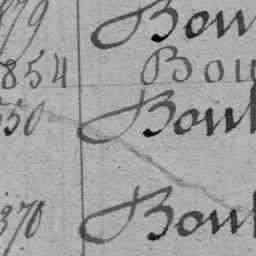 879 Bou
854 Bou
550 Boul
370 Boul